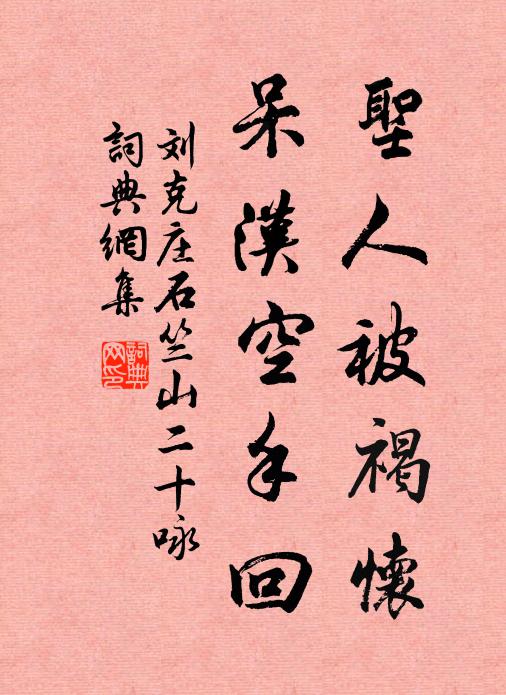 聖人被褐懷
呆漢空手回
刘克庄石竺山二十咏
詞典網集
詞典網印